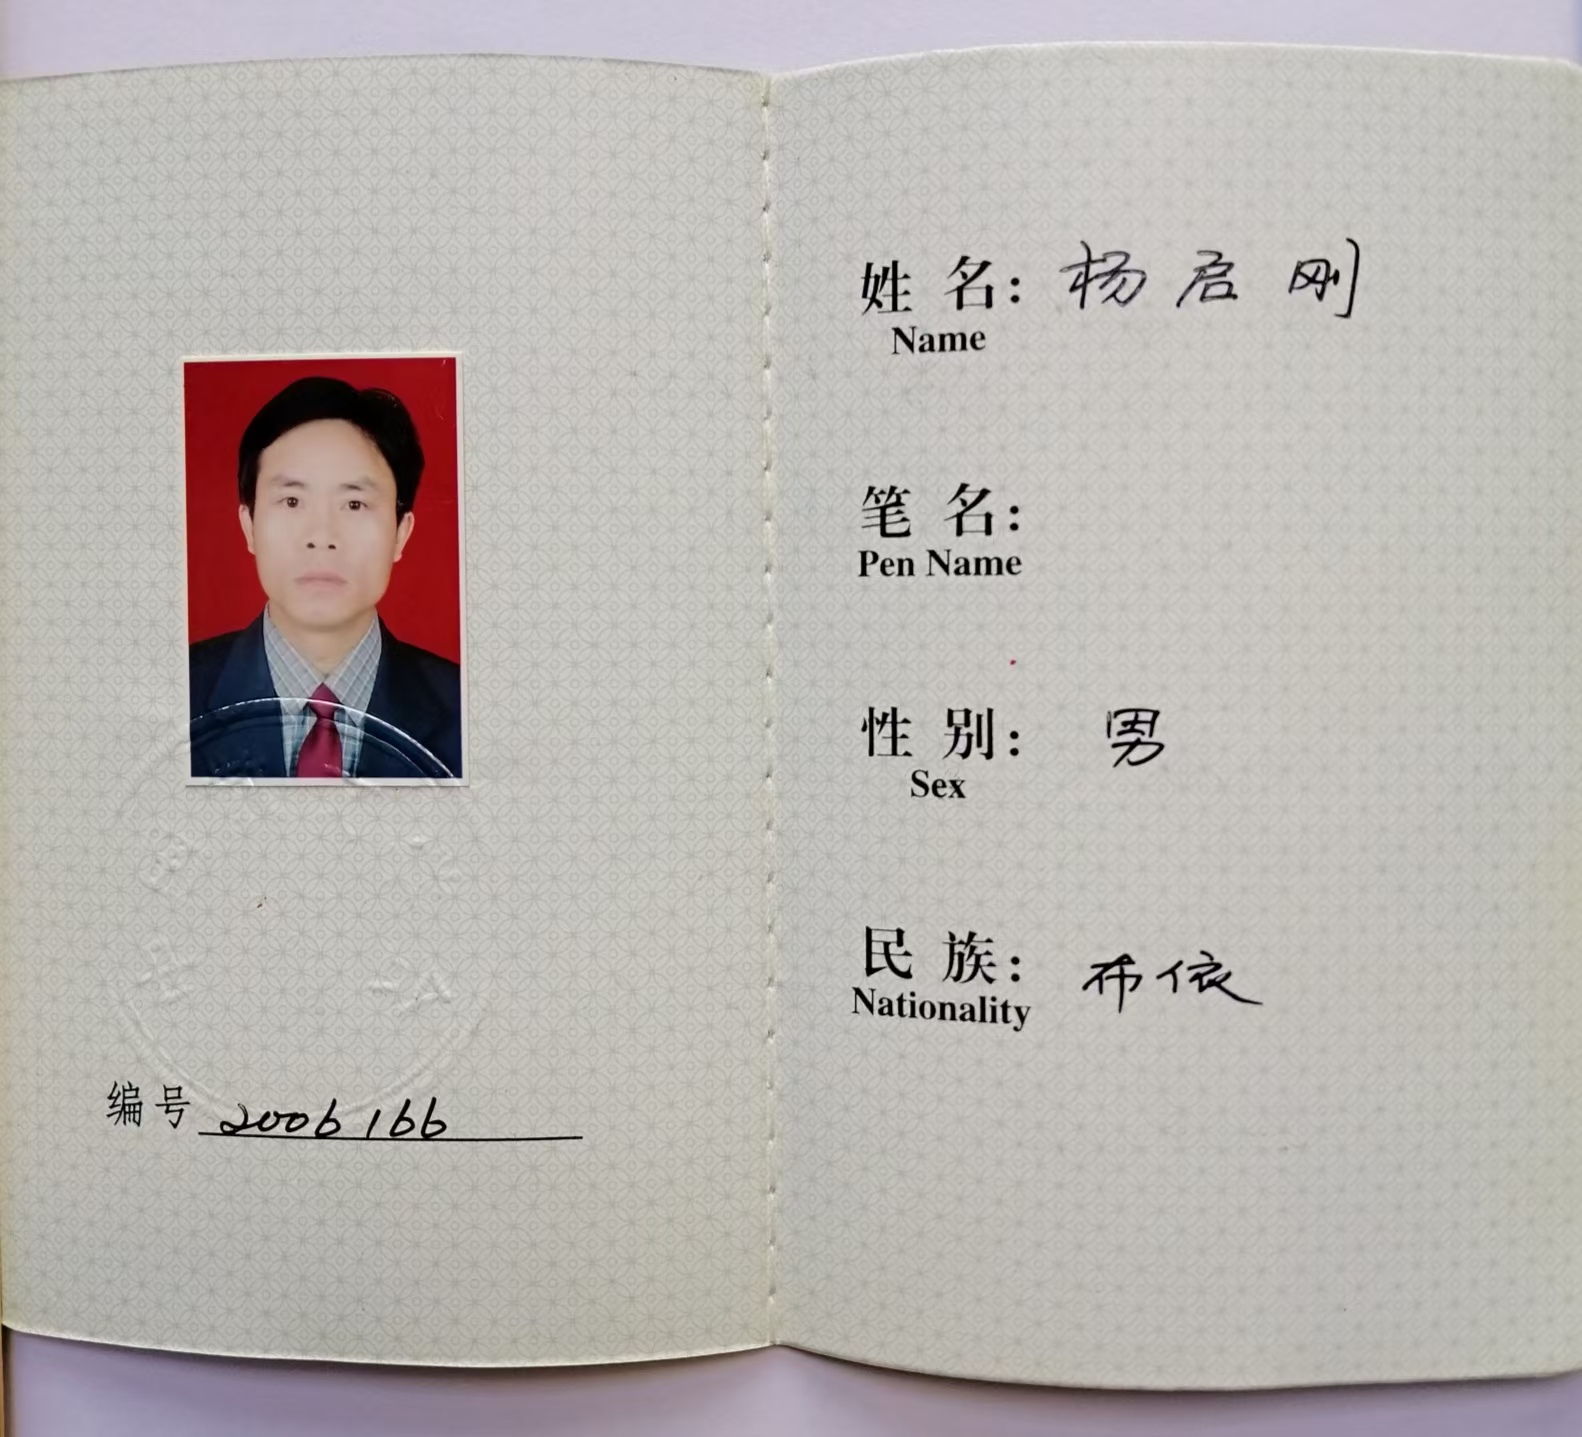 编号 2006166
姓名：杨启刚
Name
笔名：
Pen Name
性别：男
Sex
民族：布依
Nationality